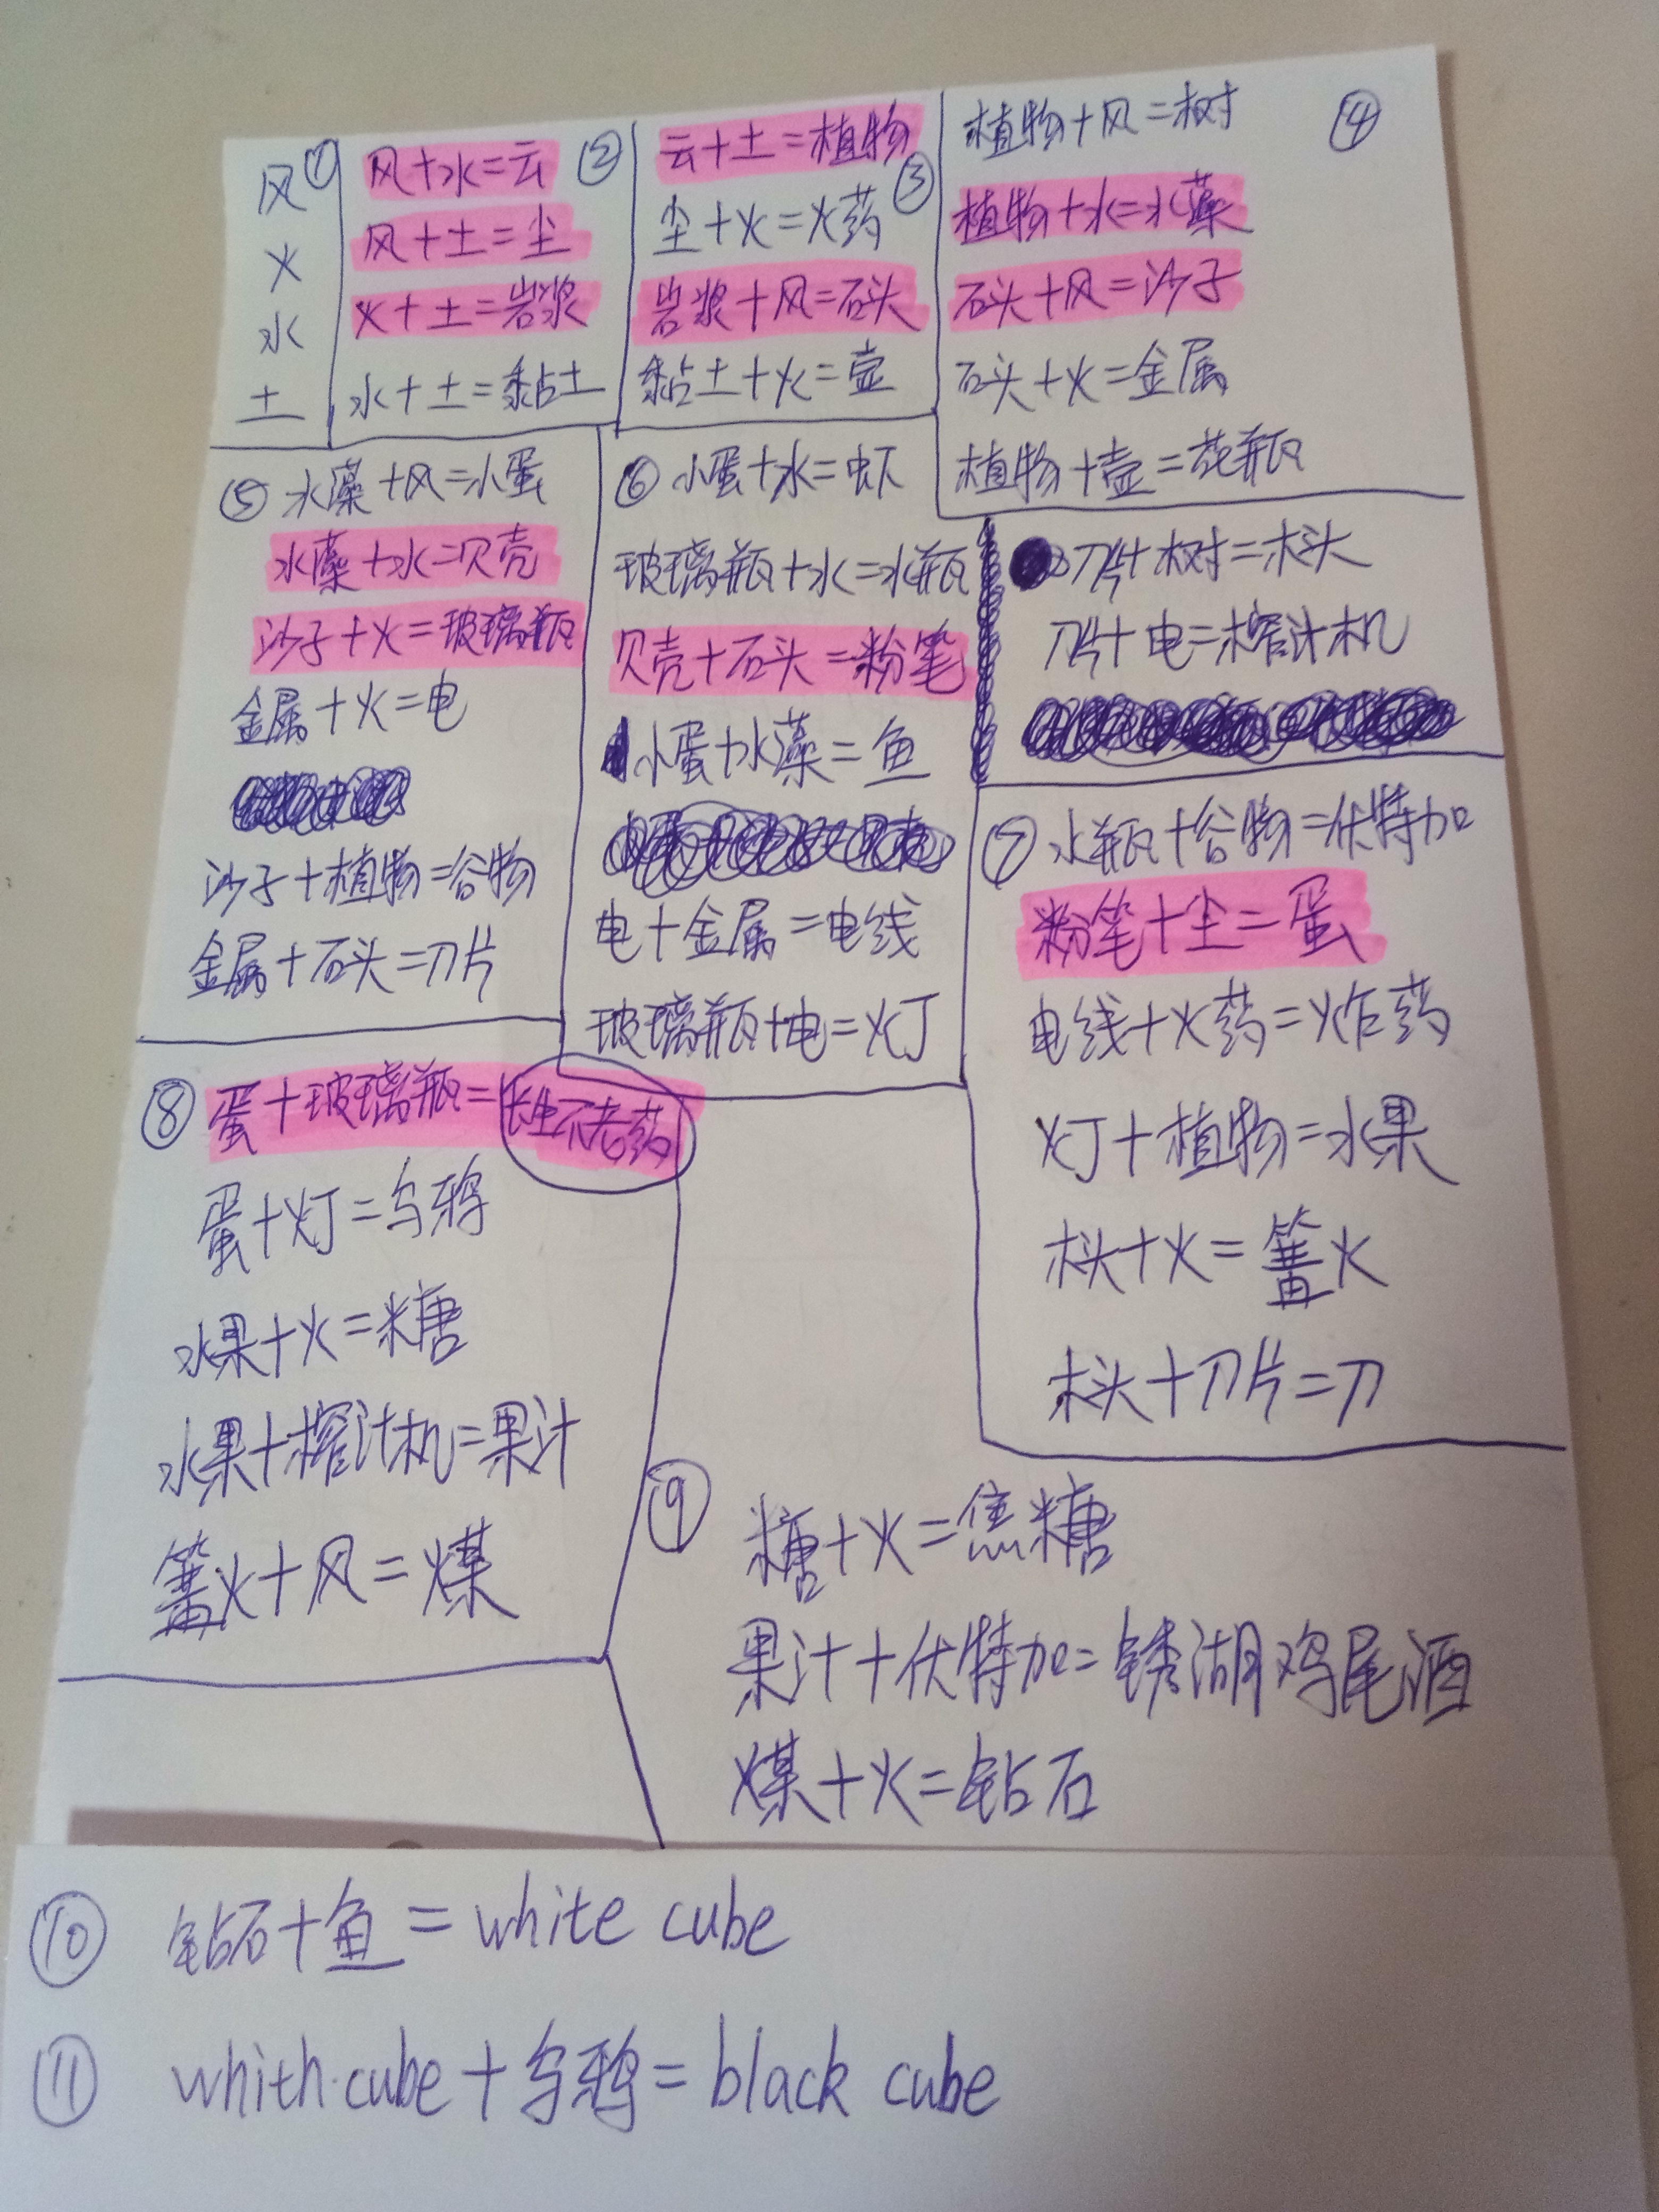 ①
风
火
水
土
②
风+水=云
风+土=尘
火+土=岩浆
水+土=黏土
③
云+土=植物
尘+火=火药
岩浆+风=石头
黏土+火=壶
④
植物+风=树
植物+水=水藻
石头+风=沙子
石头+火=金属
植物+壶=花瓶
⑤ 水藻+风=小蛋
水藻+水=贝壳
沙子+火=玻璃瓶
金属+火=电
沙子+植物=谷物
金属+石头=刀片
⑥ 小蛋+水=虾
玻璃瓶+水=水瓶
贝壳+石头=粉笔
小蛋+水藻=鱼
电+金属=电线
玻璃瓶+电=灯
刀片+树=木头
刀片+电=榨汁机
⑦ 水瓶+谷物=伏特加
粉笔+尘=蛋
电线+火药=炸药
灯+植物=水果
木头+火=篝火
木头+刀片=刀
⑧ 蛋+玻璃瓶=长生不老药
蛋+灯=乌鸦
水果+火=糖
水果+榨汁机=果汁
篝火+风=煤
⑨ 糖+火=焦糖
果汁+伏特加=锈湖鸡尾酒
煤+火=钻石
⑩ 钻石+鱼=white cube
⑪ whith·cube+乌鸦=black cube